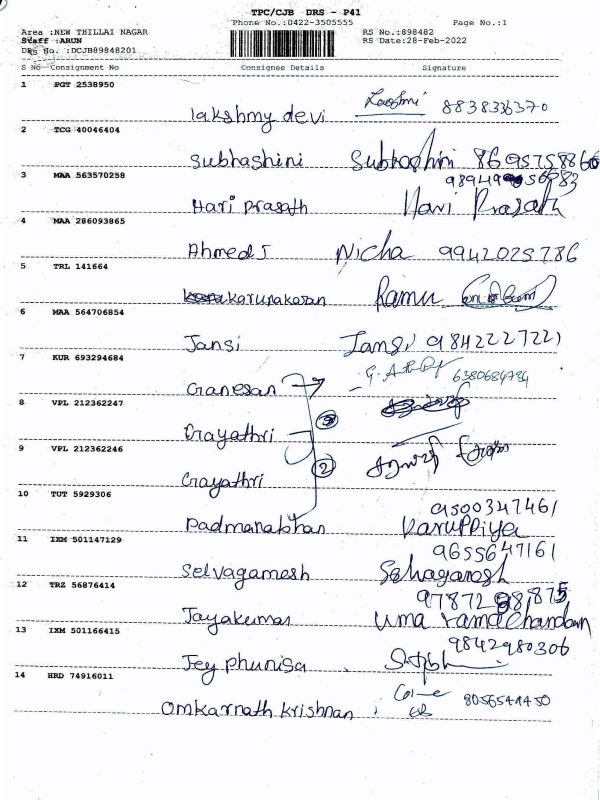 TPC/CJB DRS - P41
Phone No.:0422-3505555 Page No.:1
Area :NEW THILLAI NAGAR RS No.:898482
Staff :ARUN RS Date:28-Feb-2022
DRS No. :DCJB89848201
S No Consignment No Consignee Details Signature
1 PGT 2538950
lakshmy devi Lakshmi 8838336370
2 TCG 40046404
Subhashini Subhashini 8695758860
3 MAA 563570258
Hari prasath Hari Prasath
4 MAA 286093865
Ahmed J Nicha 9942025786
5 TRL 141664
karunakaran Ramu
6 MAA 564706854
Jansi Jansi 9842227221
7 KUR 693294684
Ganesan 6380684794
8 VPL 212362247
Gayathri
9 VPL 212362246
Gayathri 2
10 TUT 5929306
9500347461
Padmanabhan Karuppiya
11 IXM 501147129
9655647161
Selvaganesh
12 TRZ 56876414
Jayakumar Uma ramachandran
13 IXM 501166415
9842980306
Jey phunisa
14 HRD 74916011
Omkarnath Krishnan 8056541450